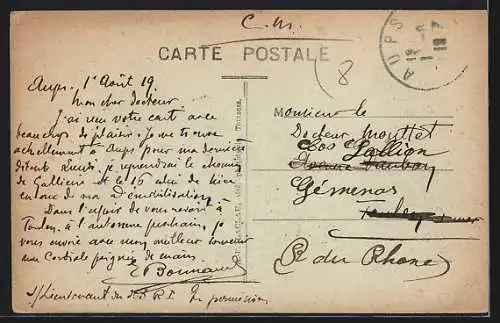 C. M.
CARTE POSTALE
AUPS
Aups, 1er Août 19.
Mon cher docteur.
J'ai reçu votre carte avec
beaucoup de plaisir. Je me trouve
actuellement à Aups pour ma dernière
Lundi, je reprendrai le chemin
de et le 16 celui de
en vue de ma démobilisation.
Dans l'espoir de vous revoir à
Toulon, à l'automne prochain, je
vous envoie avec mon meilleur souvenir
une cordiale poignée de mains.
E Bonnaud
S/Lieutenant au R. I. En permission
(8
Monsieur le
Docteur Mouttet
Clos
Gémenos
Toulon
(B. du Rhone)